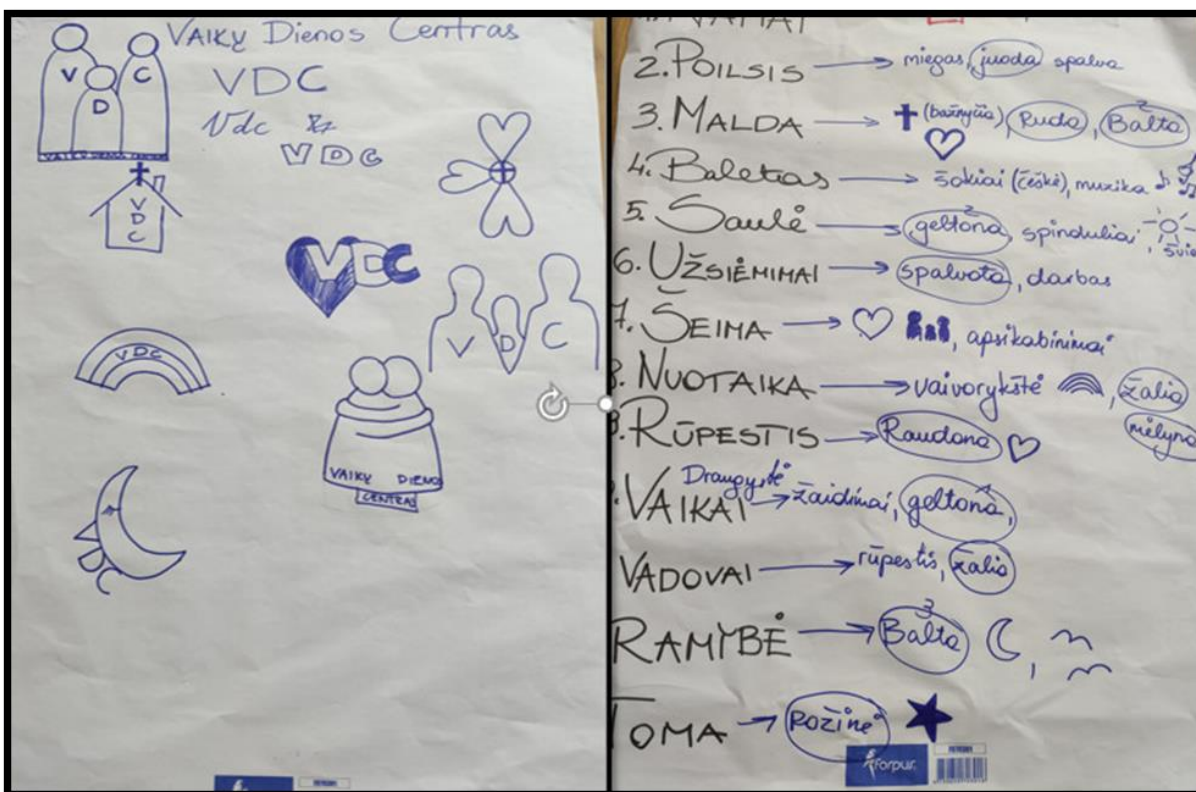 VAIKŲ Dienos Centras
V D C
VDC
Vdc
VDC
VDC
VDC
V D C
VDC
VAIKŲ DIENOS
CENTRAS
VDC
2. POILSIS → miegas, juoda spalva
3. MALDA → (bažnyčia), Ruda, Balta 2
4. Baletas → šokiai (češkė), muzika
5. Saulė → geltona 2, spinduliai
6. UŽSIĖMIMAI → spalvota, darbas
7. ŠEIMA → apsikabinimai
NUOTAIKA → vaivorykštė, žalia
mėlyna
RŪPESTIS → Raudona
Draugystė
VAIKAI → žaidimai, geltona,
VADOVAI → rūpestis, žalia
RAMYBĖ → Balta 3
TOMA → Rožinė
forpus